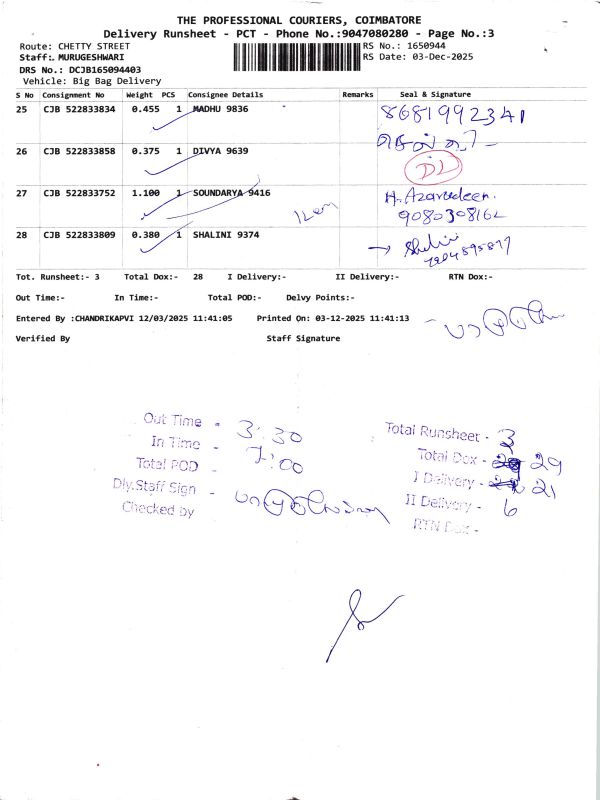 THE PROFESSIONAL COURIERS, COIMBATORE
Delivery Runsheet - PCT - Phone No.:9047080280 - Page No.:3
Route: CHETTY STREET
RS No.: 1650944
Staff: MURUGESHWARI
RS Date: 03-Dec-2025
DRS No.: DCJB165094403
Vehicle: Big Bag Delivery
S No Consignment No Weight PCS Consignee Details Remarks Seal & Signature
25 CJB 522833834 0.455 1 MADHU 9836 8681992341
26 CJB 522833858 0.375 1 DIVYA 9639 DL
27 CJB 522833752 1.100 1 SOUNDARYA 9416 H. Azarudeen.
28 CJB 522833809 0.380 1 SHALINI 9374 Shalini
Tot. Runsheet:- 3 Total Dox:- 28 I Delivery:- II Delivery:- RTN Dox:-
Out Time:- In Time:- Total POD:- Delvy Points:-
Entered By :CHANDRIKAPVI 12/03/2025 11:41:05 Printed On: 03-12-2025 11:41:13
Verified By Staff Signature
Out Time - 3:30
In Time - 7:00
Total POD -
Dly.Staff Sign -
Checked by
Total Runsheet - 3
Total Dox - 29
I Delivery - 21
II Delivery - 6
RTN Dox -